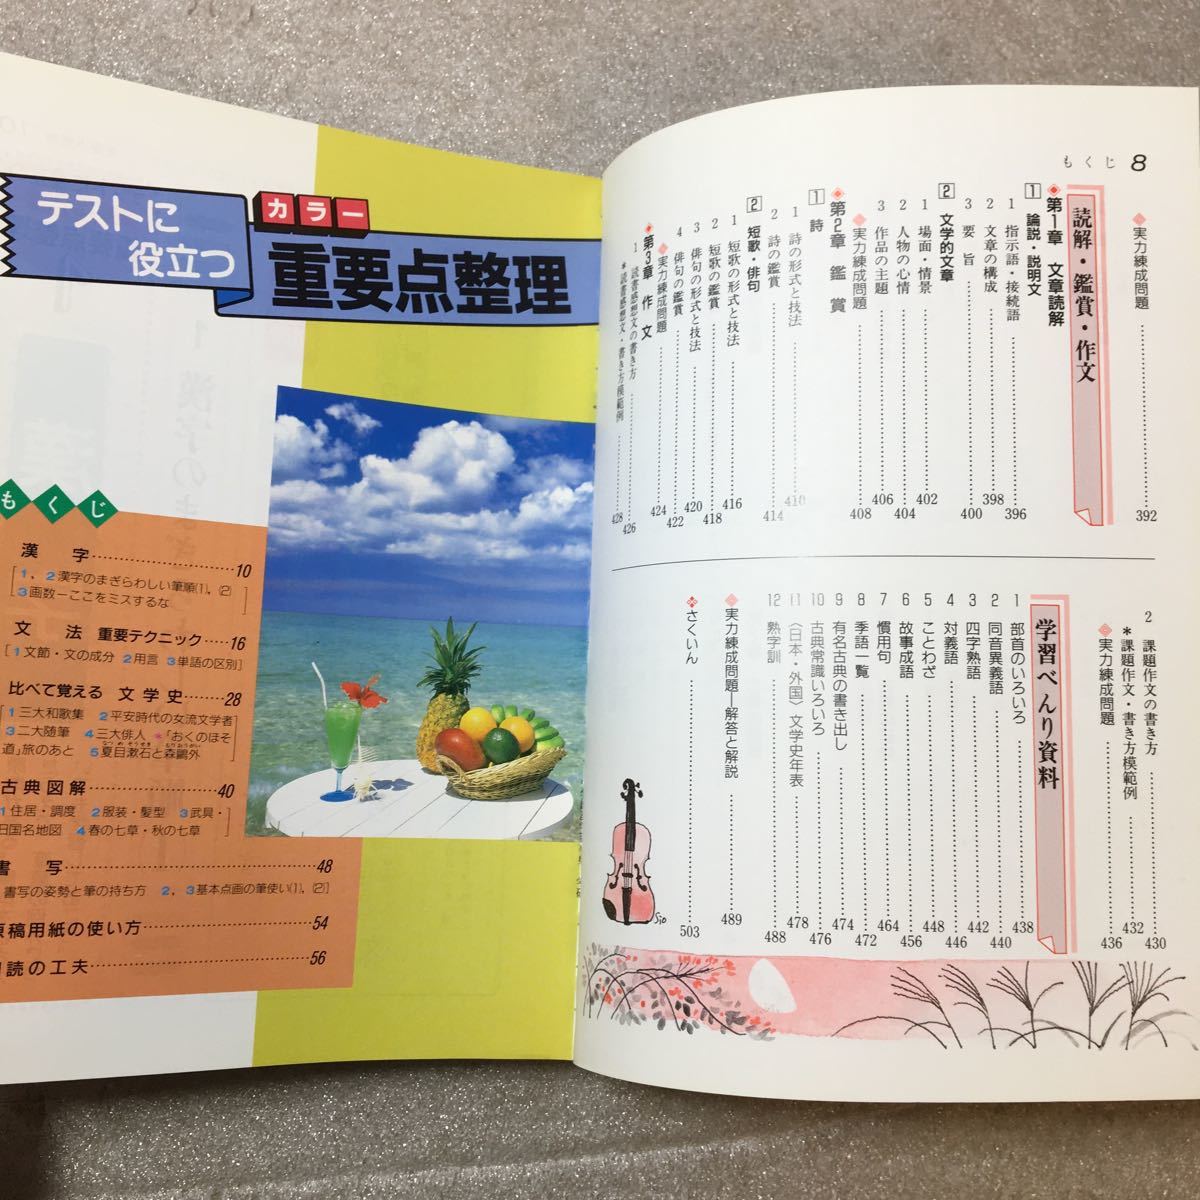 もくじ 8
◈実力練成問題……392
読解・鑑賞・作文
◈第1章 文章読解
1 論説・説明文
1 指示語・接続語……396
2 文章の構成……398
3 要 旨……400
2 文学的文章
1 場面・情景……402
2 人物の心情……404
3 作品の主題……406
◈実力練成問題……408
◈第2章 鑑 賞
1 詩
1 詩の形式と技法……410
2 詩の鑑賞……414
2 短歌・俳句
1 短歌の形式と技法……416
2 短歌の鑑賞……418
3 俳句の形式と技法……420
4 俳句の鑑賞……422
◈実力練成問題……424
◈第3章 作 文
1 読書感想文の書き方……426
*読書感想文・書き方模範例……428
2 課題作文の書き方……430
*課題作文・書き方模範例……432
◈実力練成問題……436
学習べんり資料
1 部首のいろいろ……438
2 同音異義語……440
3 四字熟語……442
4 対義語……446
5 ことわざ……448
6 故事成語……456
7 慣用句……464
8 季語一覧……472
9 有名古典の書き出し……474
10 古典常識いろいろ……476
11 〈日本・外国〉文学史年表……478
12 熟字訓……488
◈実力練成問題―解答と解説……489
❖さくいん……503
Sio
テストに
役立つ
カラー
重要点整理
もくじ
漢 字……10
1, 2漢字のまぎらわしい筆順(1), (2)
3画数－ここをミスするな
文 法 重要テクニック……16
1文節・文の成分 2用言 3単語の区別
比べて覚える 文学史……28
1三大和歌集 2平安時代の女流文学者
3二大随筆 4三大俳人 *「おくのほそ
道」旅のあと 5夏目漱石と森鷗外
古典図解……40
1住居・調度 2服装・髪型 3武具・
旧国名地図 4春の七草・秋の七草
書 写……48
書写の姿勢と筆の持ち方 2, 3基本点画の筆使い(1), (2)
原稿用紙の使い方……54
読の工夫……56